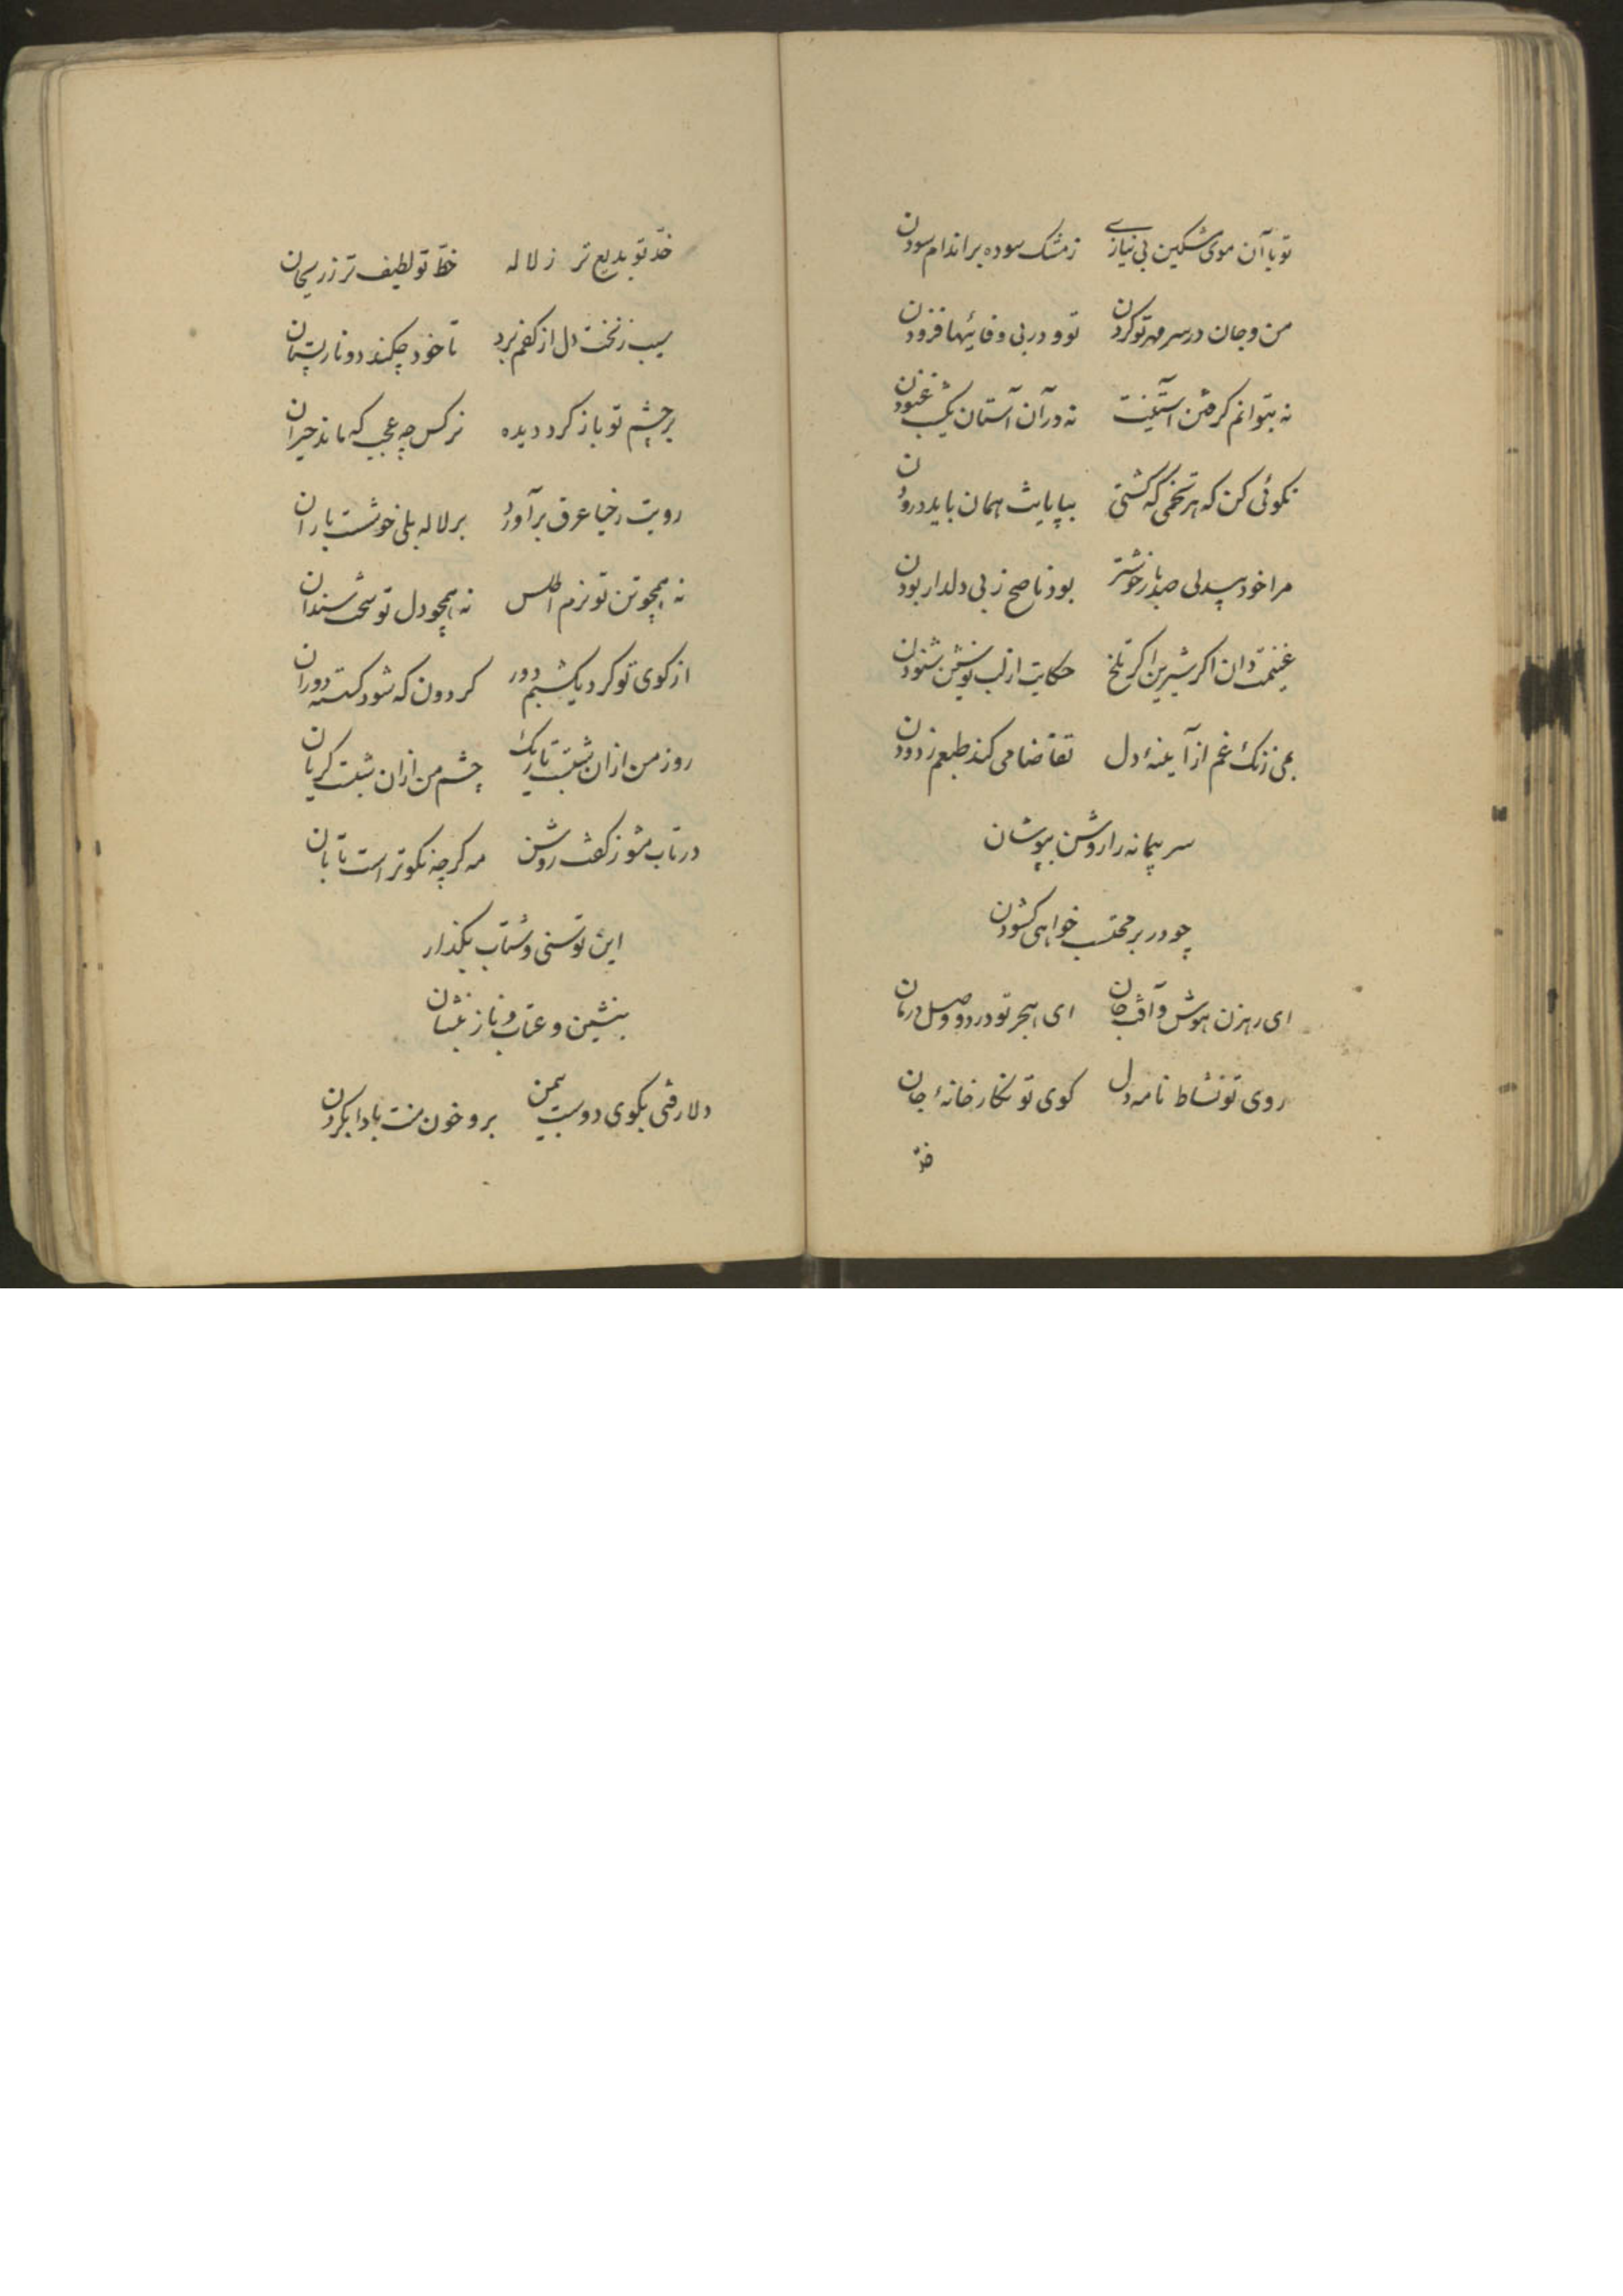 تو با آن موی مشکین بی نیازی زمشک سوده بر اندام سودن
من و جان در سر مهر تو کردن تو و در بی وفائیها فزودن
نه بتوانم گرفتن آستینت نه در آن آستان یکشب غنودن
نکوئی کن که هر تخمی که کشتی بپایانش همان باید درودن
مرا خود بیدلی صد بار خوشتر بود ناصح ز بی دلدار بودن
غنیمت دان اکر شیرین اکر تلخ حکایت از لب نوشین شنودن
بمی زنک غم از آیینهٔ دل تقاضا می کند طبعم زدودن
سر پیمانه را روشن بپوشان
چو در بر محتسب خواهی کشودن
ای رهزن هوش و آفت جان ای هجر تو درد و وصل درمان
روی تو نشاط نامه دل کوی تو نکارخانهٔ جان
خدّ
خدّ تو بدیع تر ز لاله خطّ تو لطیف تر ز ریحان
سیب زنخت دل از کفم برد تا خود چکند دو نار پستان
بر چشم تو باز کرد دیده نرکس چه عجب که ماند حیران
رویت ز حیا عرق برآورد بر لاله بلی خوشست باران
نه همچو تن تو نرم اطلس نه همچو دل تو سخت سندان
از کوی تو کرد یکشبم دور کردون که شود کسسته دوران
روز من از آن شبست تاریک چشم من از آن شبست کریان
در تاب مشو ز کفت روشن مه کرچه نکوتر است تابان
این توسنی و شتاب بکذار
بنشین و عتاب و ناز بنشان
دلا رفتی بکوی دوست بی من برو خون منت بادا بکردن